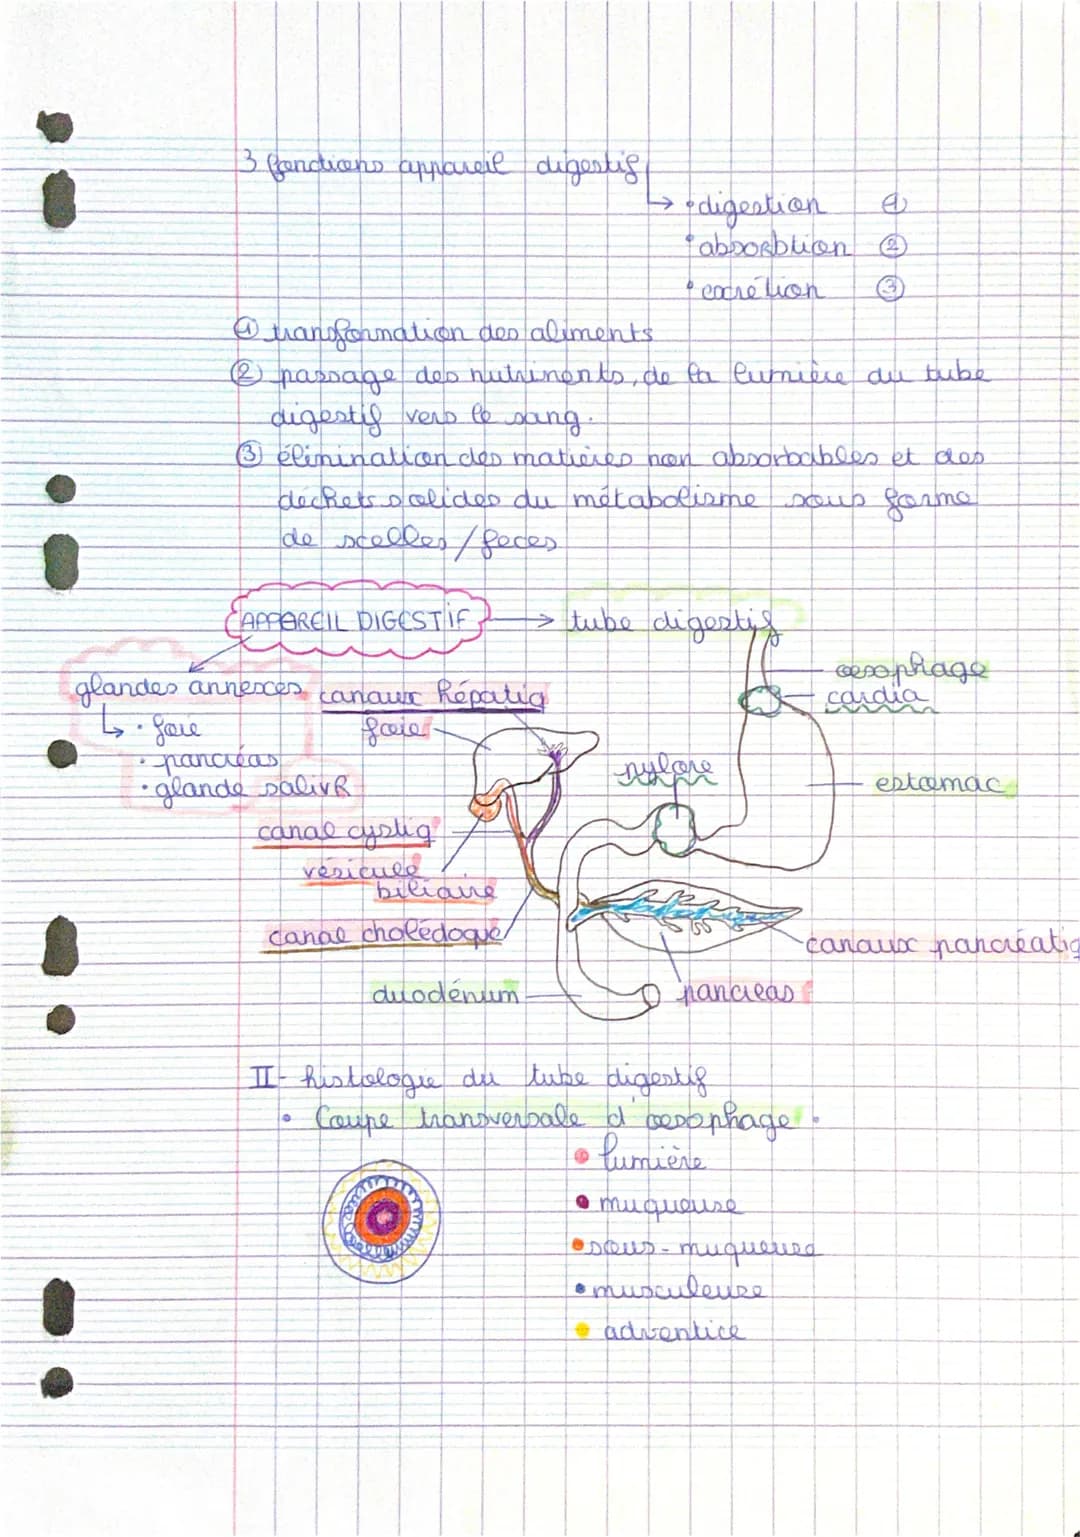 3 fonctions appareil digestif
↳ • digestion ①
• absorbtion ②
• excrétion ③
① tranformation des aliments
② passage des nutriments, de la lumière du tube
digestif vers le sang.
③ élimination des matières non absorbables et des
déchets solides du métabolisme sous forme
de scelles / feces
APPAREIL DIGESTIF → tube digestif
glandes annexes
↳ • foie
• pancréas
• glande salivR
canaux hépatiq
foie
canal cystiq
vésicule
biliaire
canal cholédoque
duodénum
oesophage
cardia
pylore
estomac
canaux pancréatiq
pancréas
II- histologie du tube digestif
• Coupe transversale d'oesophage.
• lumière
• muqueuse
• sous-muqueuse
• musculeuse
• adventice